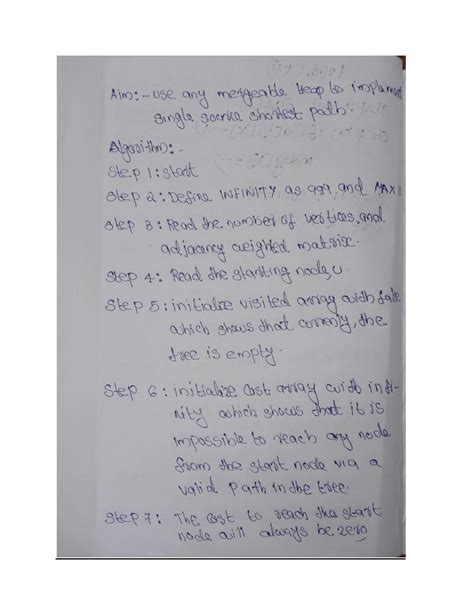 Aim:- Use any mergeable Heap to implement
single source shortest path.
Algorithm:-
Step 1: Start
Step 2: Define INFINITY as 999, and MAX
Step 3: Read the number of vertices, and
adjacancy weighted matrix.
Step 4: Read the starting node, u.
Step 5: initialize visited array with false
which shows that currently, the
tree is empty.
Step 6: initialize cost array with infi-
nity which shows that it is
impossible to reach any node
from the start node via a
valid path in the tree.
Step 7: The cost to reach the start
node will always be zero